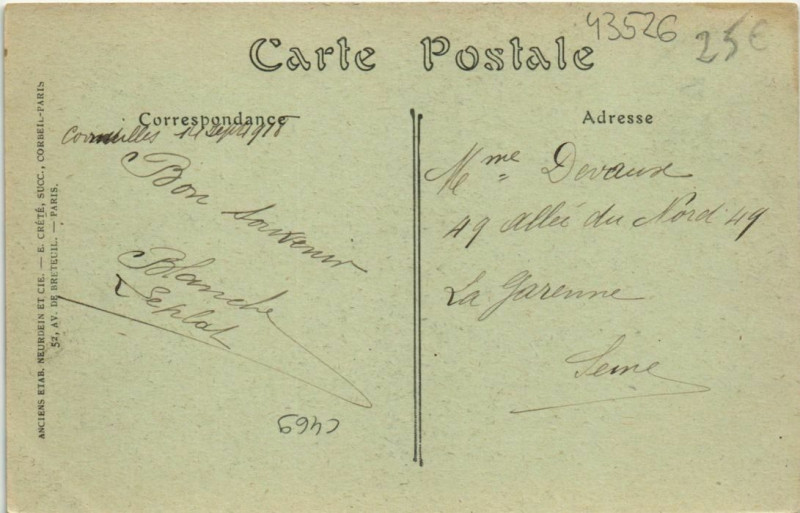 43526
25€
Carte Postale
Correspondance
Cormeilles 14 sept 1918
Bon souvenir
Blanche
Leplat
6942
Adresse
Mme Devaux
49 allée du Nord 49
La Garenne
Seine
ANCIENS ETAB. NEURDEIN ET CIE. — E. CRÉTÉ, SUCC., CORBEIL-PARIS
52, AV. DE BRETEUIL. — PARIS.